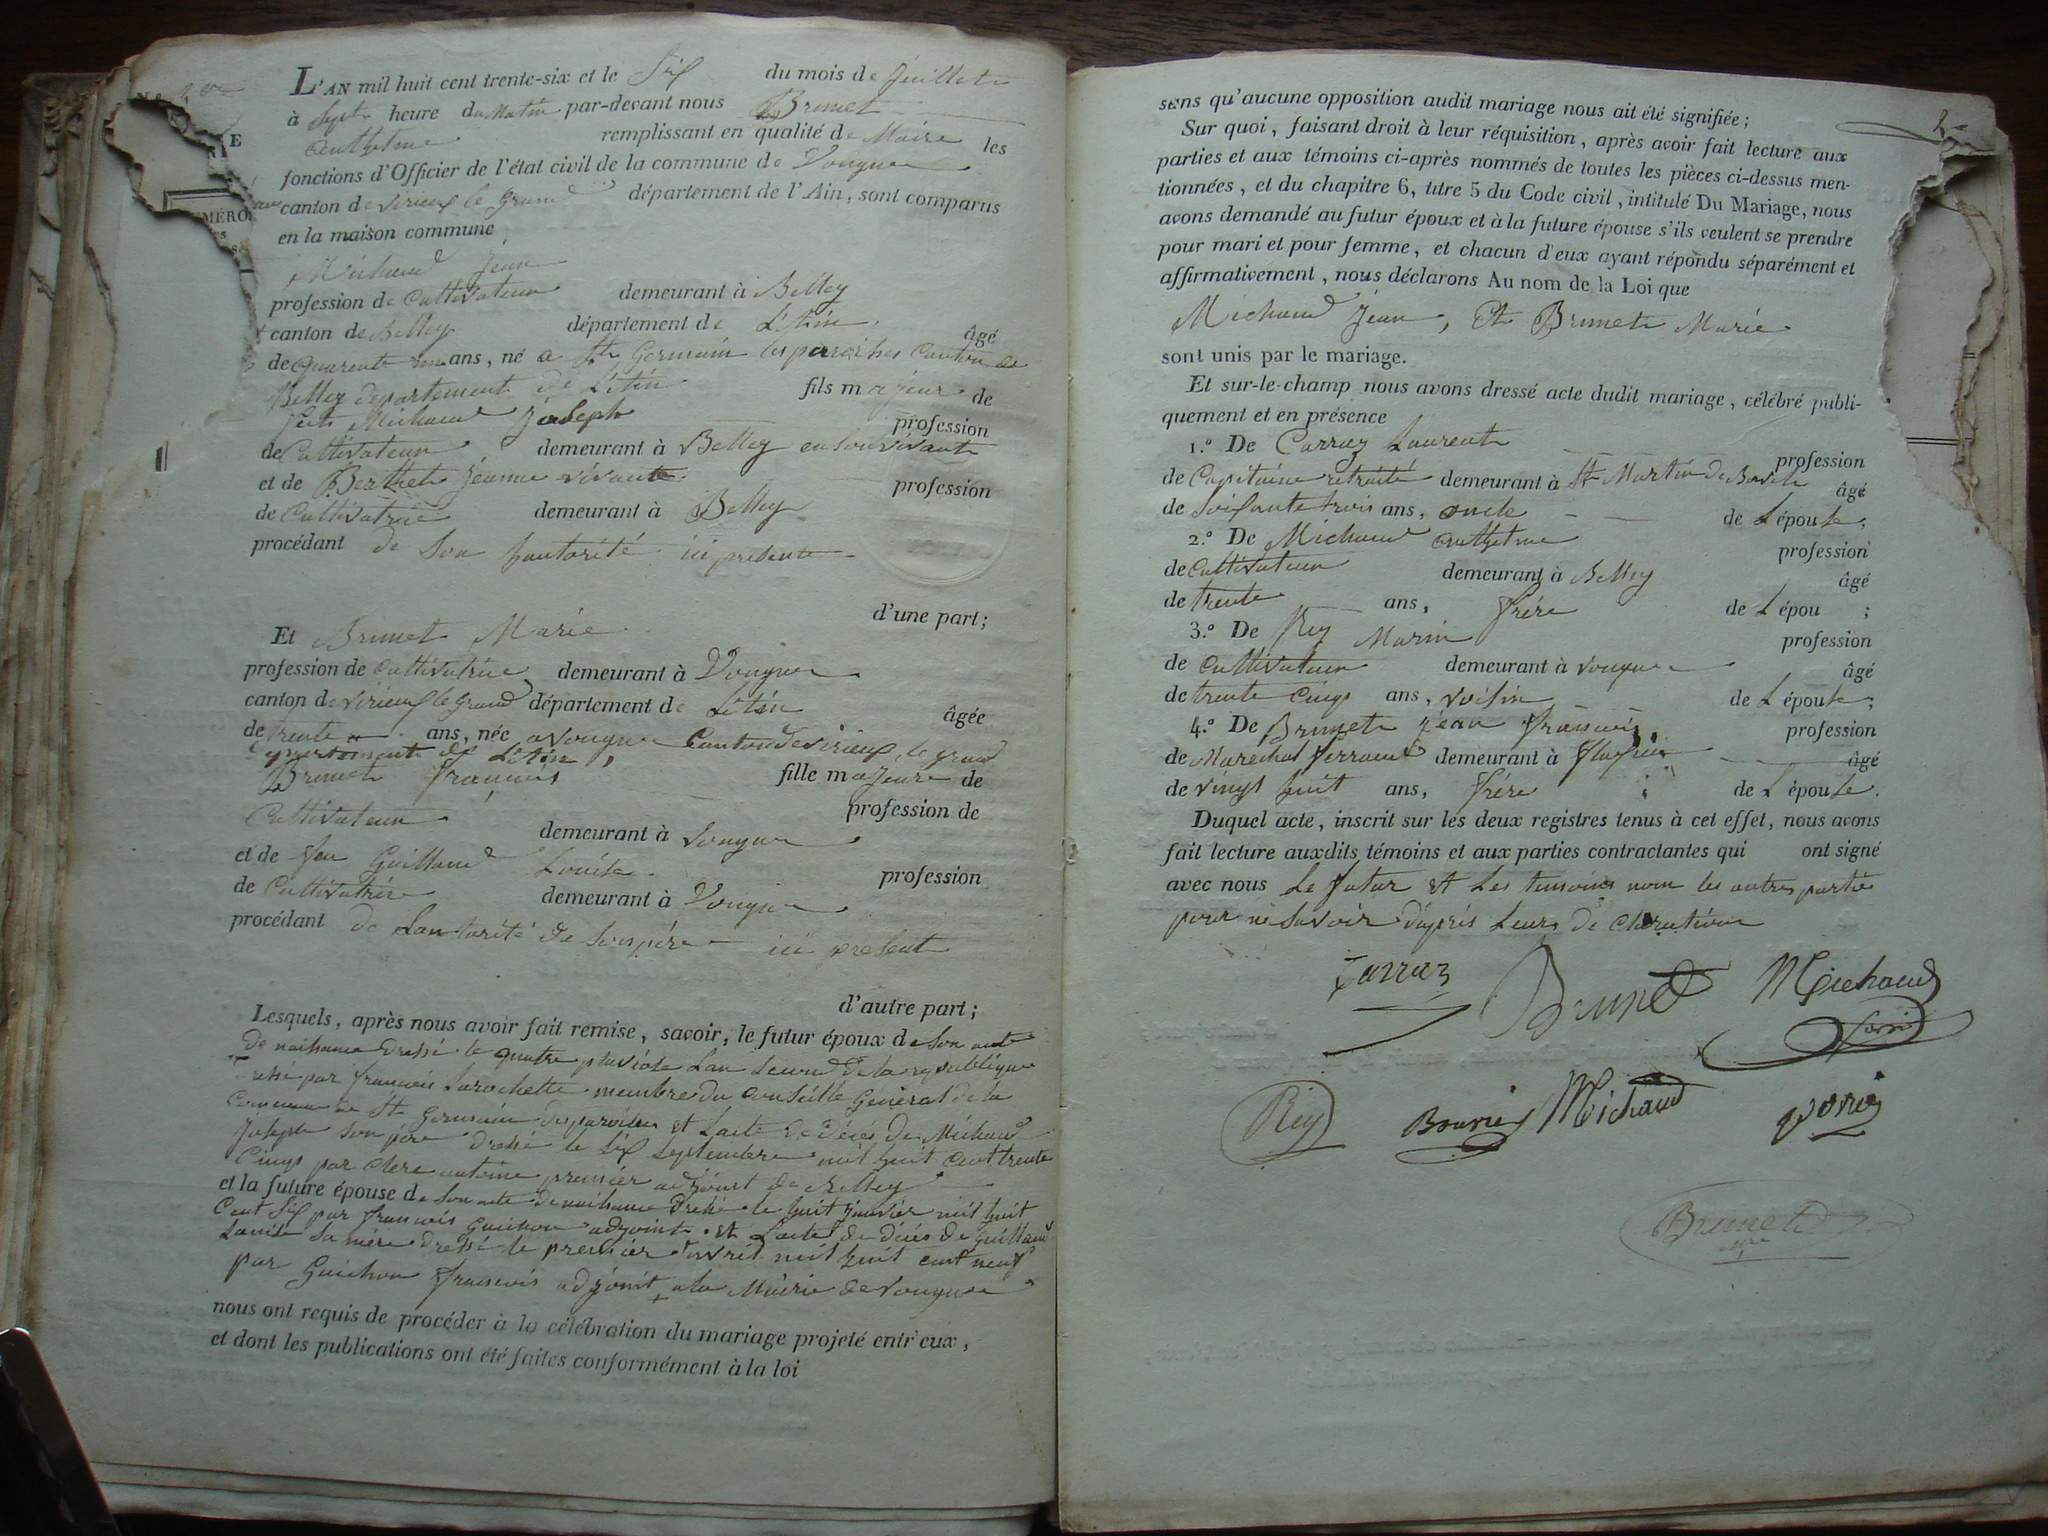 L'AN mil huit cent trente-six et le Six du mois de Juillet
à Sept heure du Matin par-devant nous Brunet
Anthelme remplissant en qualité de Maire les
fonctions d'Officier de l'état civil de la commune de Vongne
canton de Virieux le Grand département de l'Ain, sont comparus
en la maison commune
Michaud Jean
profession de Cultivateur demeurant à Belley
canton de Belley département de L'Ain âgé
de quarente un ans, né a St Germain les paroisses Canton de
Belley departement de L'Ain fils majeur de
feu Michaud Joseph profession
de Cultivateur demeurant à Belley en son vivant
et de Berthet Jeanne vivante profession
de Cultivatrice demeurant à Belley
procédant de Son hautorité ici présente
d'une part;
Et Brunet Marie
profession de Cultivatrice demeurant à Vongne
canton de Virieux le Grand département de L'Ain âgée
de trente ans, née a Vongne Canton de Virieux le grand
departement de L'Ain
Brunet François fille majeure de
profession de
Cultivateur demeurant à Vongne
et de feu Guillaud Louise profession
de Cultivatrice demeurant à Vongne
procédant de Lautorité de Son père ici présent
d'autre part;
Lesquels, après nous avoir fait remise, savoir, le futur époux de Son acte
de naissance Dressé le quatre pluviose Lan Second de la republique
Dressé par françois Larochette membre du Conseille General de la
Commune de St Germain les paroisses et Lacte de décés de Michaud
Joseph Son père Dressé le Six Septembre mil huit Cent trente
Cinq par Clerc antoine premier adjoint de Belley
et la future épouse de Son acte de naissance Dressé le huit Janvier mil huit
Cent Six par françois Guichon adjoint et Lacte de décés de Guillaud
Louise Sa mère Dressé le premier avril mil huit cent neuf
par Guichon françois adjoint a la Mairie de Vongne
nous ont requis de procéder à la célébration du mariage projeté entr'eux,
et dont les publications ont été faites conformément à la loi
2
sans qu'aucune opposition audit mariage nous ait été signifiée;
Sur quoi, faisant droit à leur réquisition, après avoir fait lecture aux
parties et aux témoins ci-après nommés de toutes les pièces ci-dessus men-
tionnées, et du chapitre 6, titre 5 du Code civil, intitulé Du Mariage, nous
avons demandé au futur époux et à la future épouse s'ils veulent se prendre
pour mari et pour femme, et chacun d'eux ayant répondu séparément et
affirmativement, nous déclarons Au nom de la Loi que
Michaud Jean, Et Brunet Marie
sont unis par le mariage.
Et sur-le-champ nous avons dressé acte dudit mariage, célébré publi-
quement et en présence
1.º De Carraz Laurent profession
de Capitaine retraité demeurant à St Martin de Bavel âgé
de Soixante trois ans, oncle de L'épouse;
2.º De Michaud Anthelme profession
de Cultivateur demeurant à Belley âgé
de trente ans, frère de L'épou ;
3.º De Rey Marin profession
de Cultivateur demeurant à Vongne âgé
de trente Cinq ans, voisin de L'épouse;
4.º De Brunet Jean François profession
de Marechal ferrand demeurant à âgé
de vingt huit ans, frère de L'épouse.
Duquel acte, inscrit sur les deux registres tenus à cet effet, nous avons
fait lecture auxdits témoins et aux parties contractantes qui ont signé
avec nous Le futur Et Les temoins nom les autres partie
pour ne Savoir dapris Leurs déclaration
Carraz Brunet Michaud
Rey Michaud
Brunet